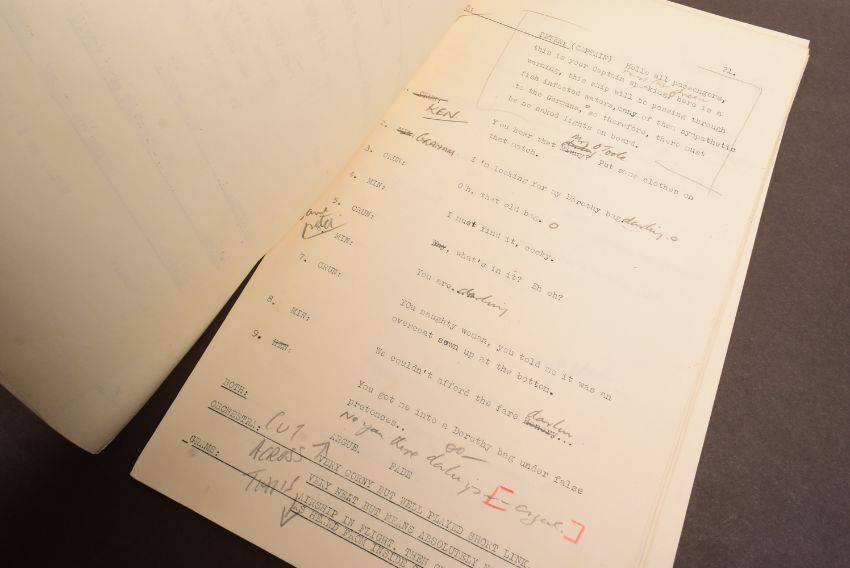 21.
PETER: (CAPTAIN) Hello all passengers,
this is your Captain speaking, here is a
warning, this ship will be passing through
fish infested waters, many of them sympathetic
to the Germans, so therefore, there must
be no naked lights on board.
KEN.
You hear that Mr O'Toole Put some clothes on
that match.
2. GRAHAM
3. CRUN: I'm looking for my Dorothy bag darling.
4. MIN: Oh, that old bag.
5. CRUN: I must find it, cocky.
MIN: what's in it? Eh eh?
7. CRUN: You are. darling
8. MIN: YOu naughty woman, you told me it was an
overcoat sewn up at the bottom.
9. We couldn't afford the fare darlin
You got me into a Dorothy bag under false
pretenses..
No you there
BOTH: ARGUE.
FADE
argue.
ORCHESTRA: VERY CORNY BUT WELL PLAYED SHORT LINK
VERY NEAT BUT MEANS ABSOLUTELY
CUT
ACROSS
THIS
GRAMS: AIRSHIP IN FLIGHT. THEN
AS HEARD FROM INSIDE